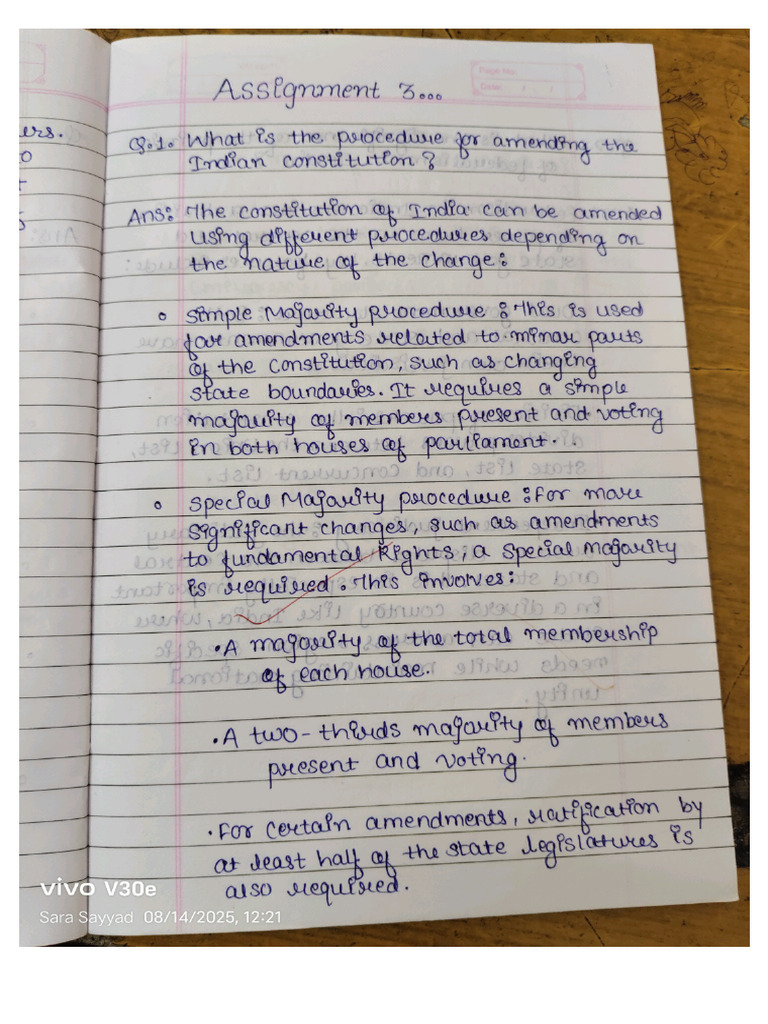 Assignment 3...
Page No.
Date: / /
ers.
Q.1. What is the procedure for amending the
Indian constitution?
Ans: The constitution of India can be amended
using different procedures depending on
the nature of the change:
• Simple Majority procedure: This is used
for amendments related to minar parts
of the constitution, such as changing
state boundaries. It requires a simple
majority of members present and voting
in both houses of parliament.
• Special Majority procedure: For more
significant changes, such as amendments
to fundamental Rights, a special majority
is required. This involves:
• A majority of the total membership
of each house.
• A two-thirds majority of members
present and voting.
• For certain amendments, ratification by
at least half of the state legislatures is
also required.
vivo V30e
Sara Sayyad 08/14/2025, 12:21